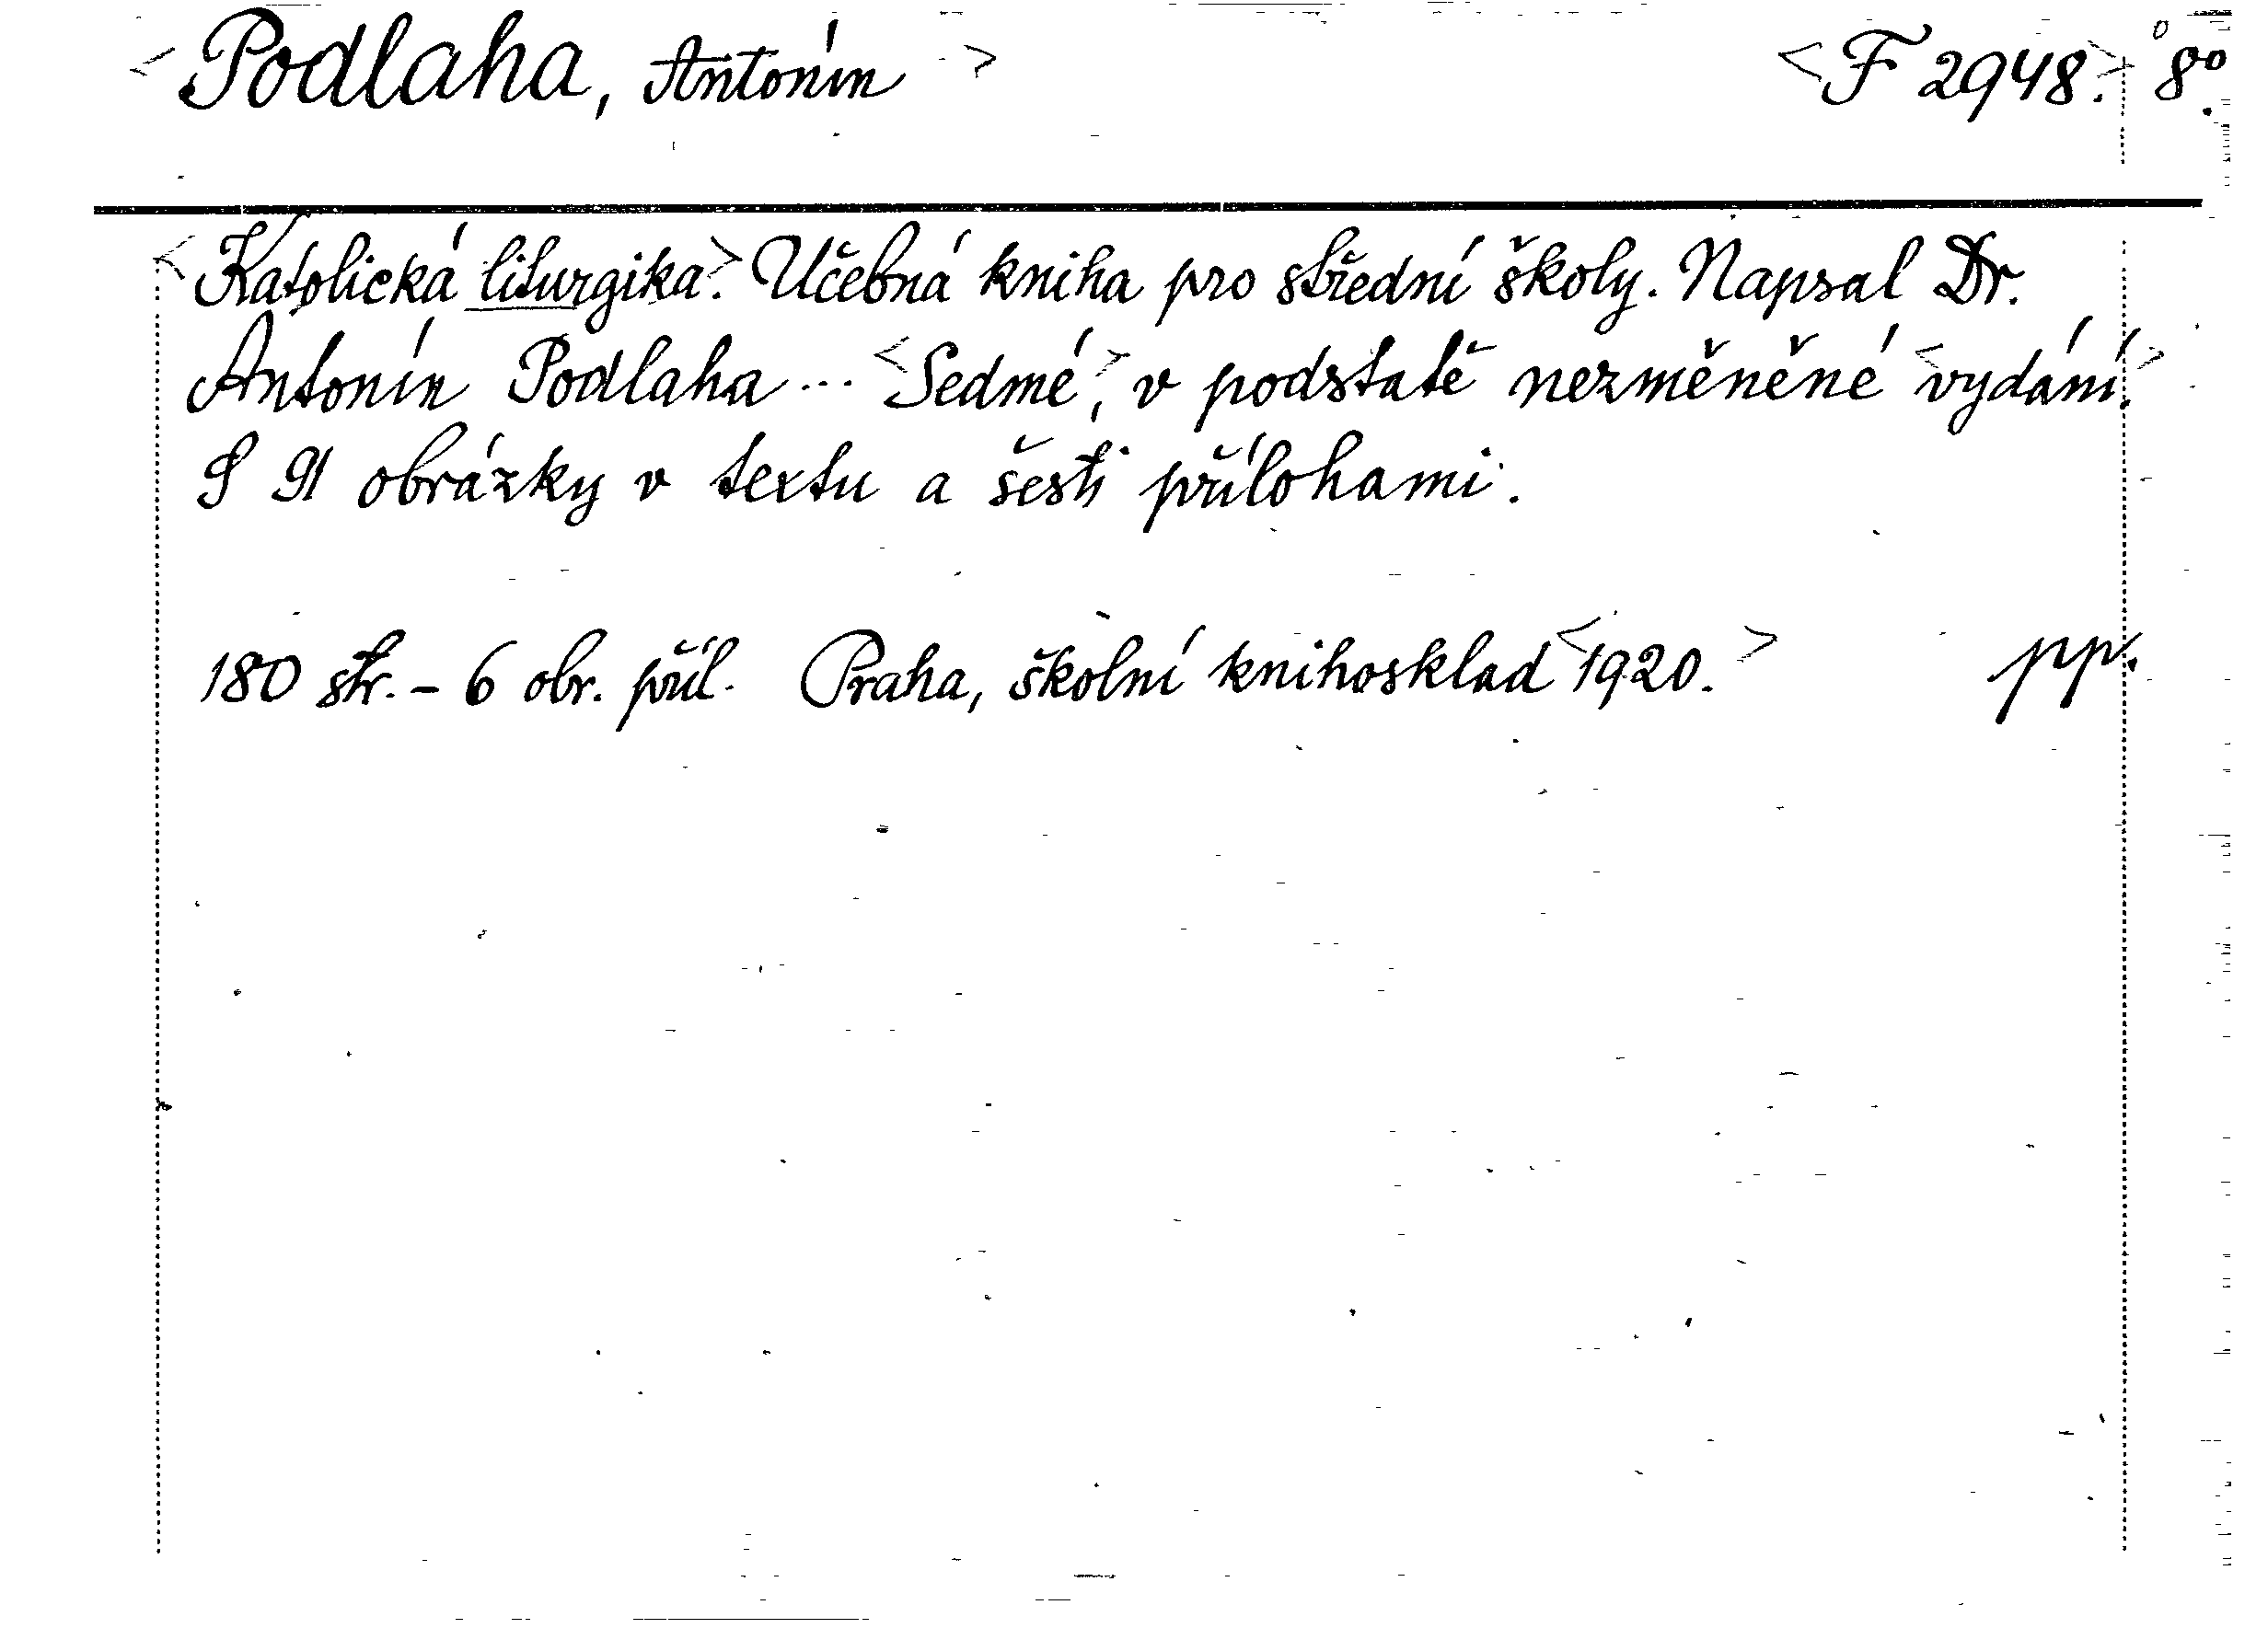 <Podlaha, Antonín> <F 2948.> 8°.
<Katolická liturgika.> Učebná kniha pro střední školy. Napsal Dr.
Antonín Podlaha ... <Sedmé>, v podstatě nezměněné <vydání.>
S 91 obrázky v textu a šesti přílohami.
180 str. - 6 obr. příl. Praha, školní knihosklad <1920.> pp.